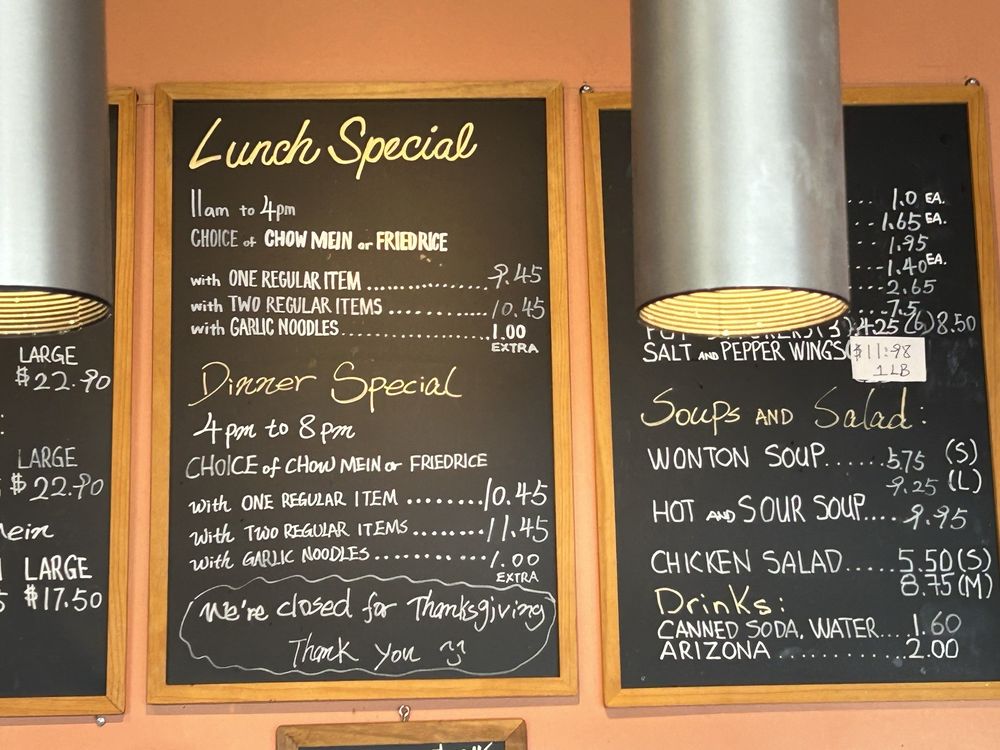 LARGE
$22.90
LARGE
$22.90
LARGE
$17.50
Lunch Special
11am to 4pm
CHOICE of CHOW MEIN or FRIED RICE
with ONE REGULAR ITEM ............... 9.45
with TWO REGULAR ITEMS ............. 10.45
with GARLIC NOODLES.................... 1.00
EXTRA
Dinner Special
4pm to 8pm
CHOICE of CHOW MEIN or FRIEDRICE
with ONE REGULAR ITEM ........10.45
with TWO REGULAR ITEMS ........11.45
with GARLIC NOODLES............ 1.00
EXTRA
We're closed for Thanksgiving
Thank you
... 1.0 EA.
... 1.65 EA.
.. 1.95
... 1.40 EA.
.. 2.65
.. 7.5
4.25 (6) 8.50
SALT AND PEPPER WINGS
$11.98
1 LB
Soups AND Salad:
WONTON SOUP......5.75 (S)
9.25 (L)
HOT AND SOUR SOUP.... 9.95
CHICKEN SALAD.....5.50 (S)
8.75 (M)
Drinks:
CANNED SODA, WATER....1.60
ARIZONA ............2.00